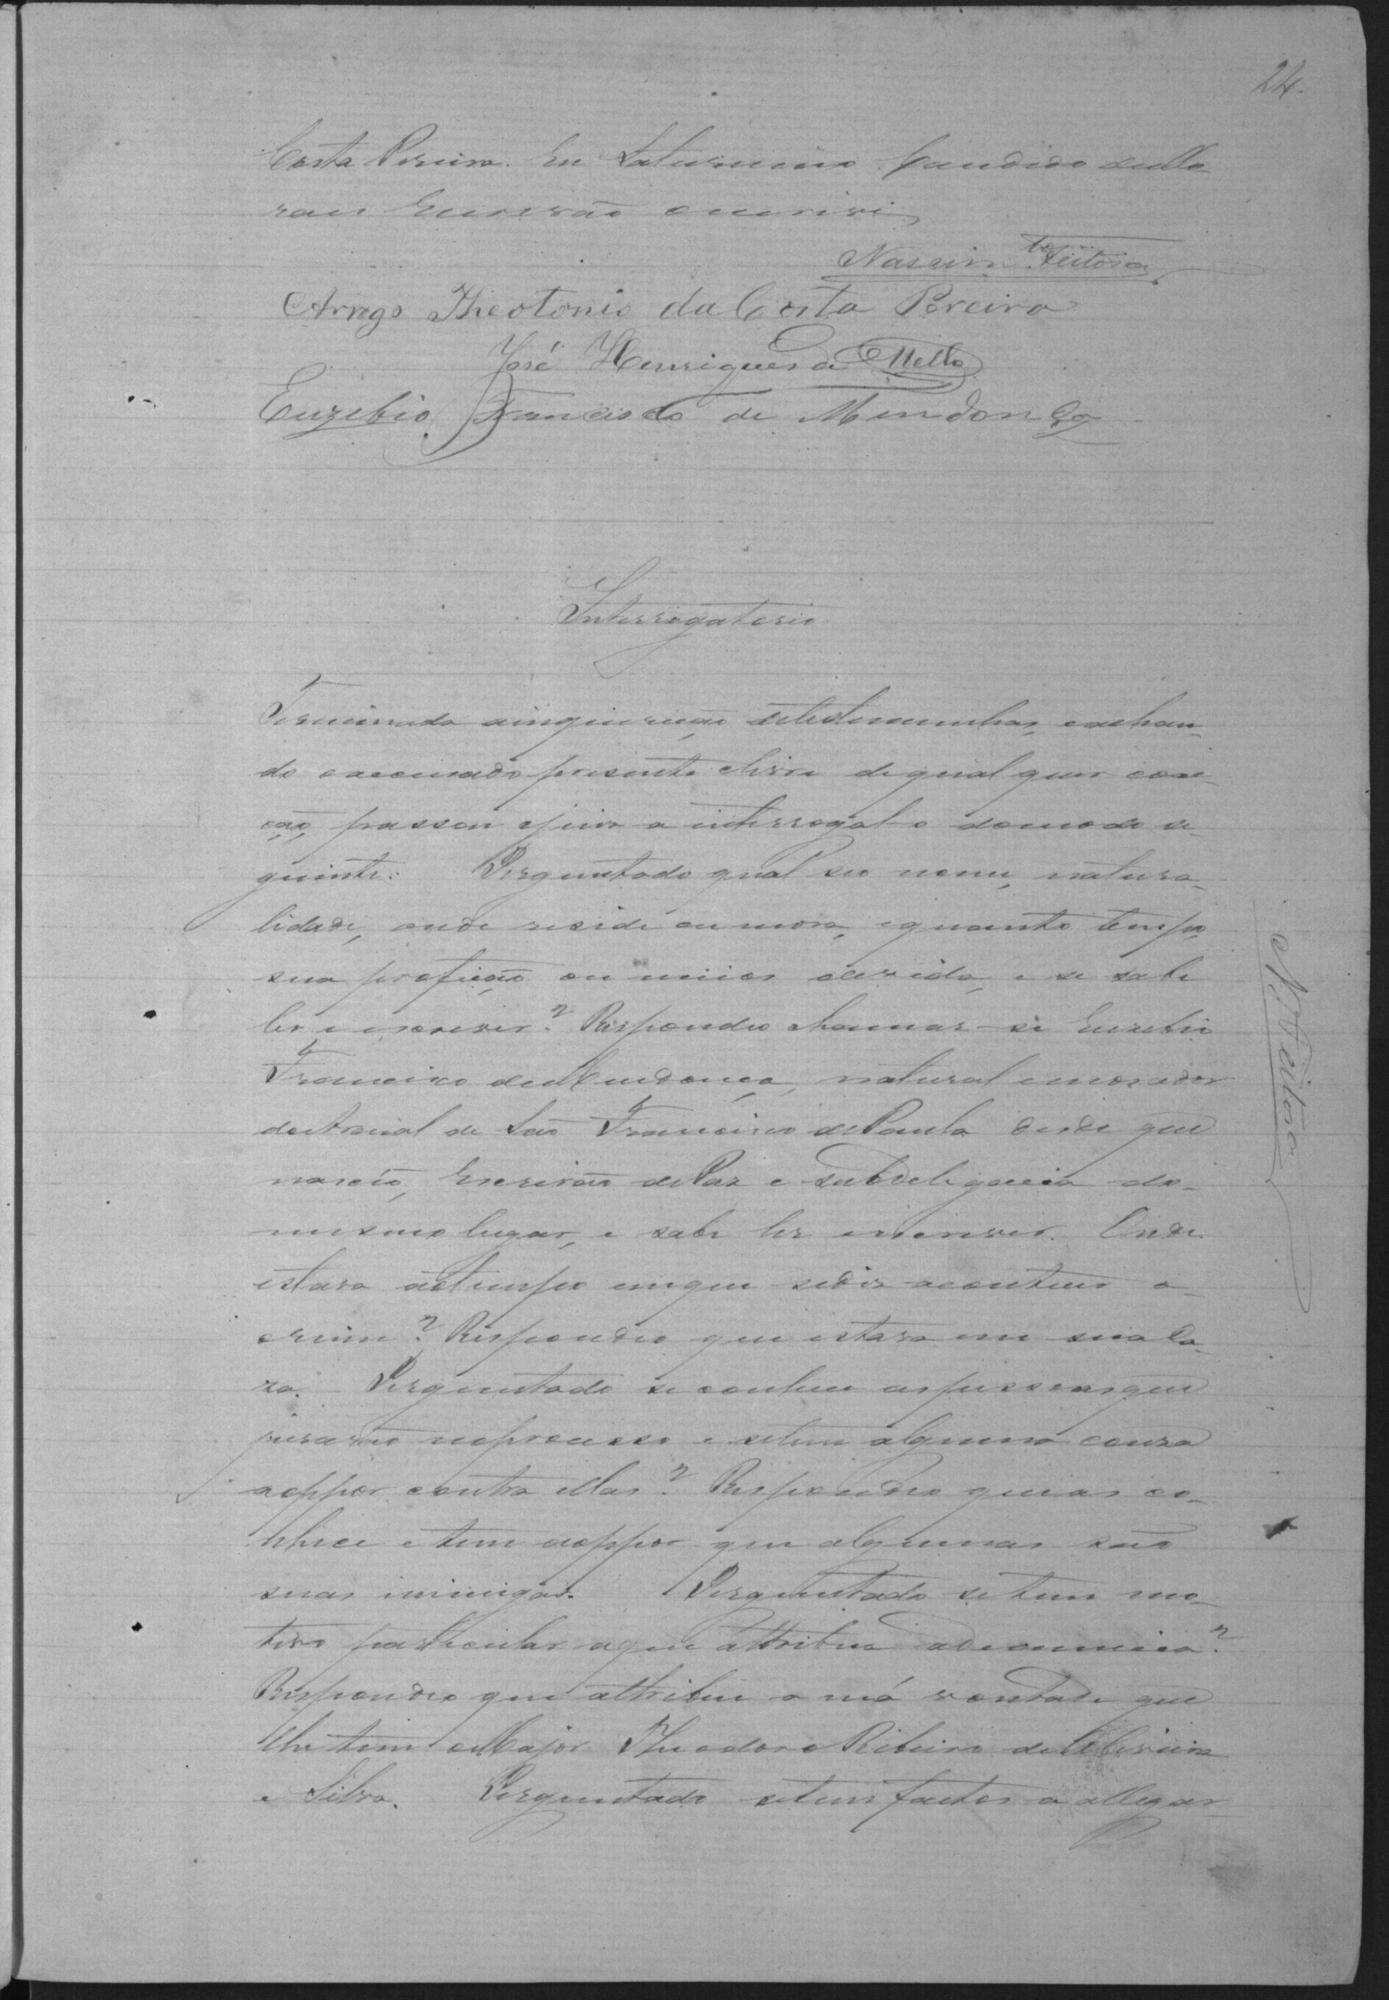 24.
Costa Pereira. Eu Saturnino Candido
Escrivão o escrivi
Nascim.to Feitosa
Arrogo Theotonio da Costa Pereira
José Henriques de Mello
Euzebio Francisco de Mendonça
Interrogatorio
Terminada ainquirição detestemunhas, eachan-
do oaccusado presente elivre dequalquer coac-
ção, passou ojuiz a interrogal-o domodo se-
guinte: Perguntado qual seu nome, natura-
lidade, onde reside ou mora, equanto tempo,
sua profição ou meios devida, e se sabe
ler e escrever? Respondeo chamar-se Euzebio
Francisco deMendonça, natural emorador
doArraial de São Francisco dePaula desde que
nasceo, Escrivão dePaz e subdelegacia do
mesmo lugar, e sabe ler eescrever. Onde
estava aotempo emque sediz aconteceo o
crime? Respondeo que estava em sua Ca-
za. Perguntado se conhece aspessoas que
jurarão noprocesso e setem alguma couza
aoppor contra ellas? Respondeo que as co-
nhece e tem aoppor que algumas são
suas inimigas. Perguntado se tem mo-
tivo particular aque attribua adenuncia?
Respondeo que attribue a má vontade que
lhe tem oMajor Theodoro Ribeiro deOliveira
e Silva. Perguntado setem factos a allegar
N. Feitosa